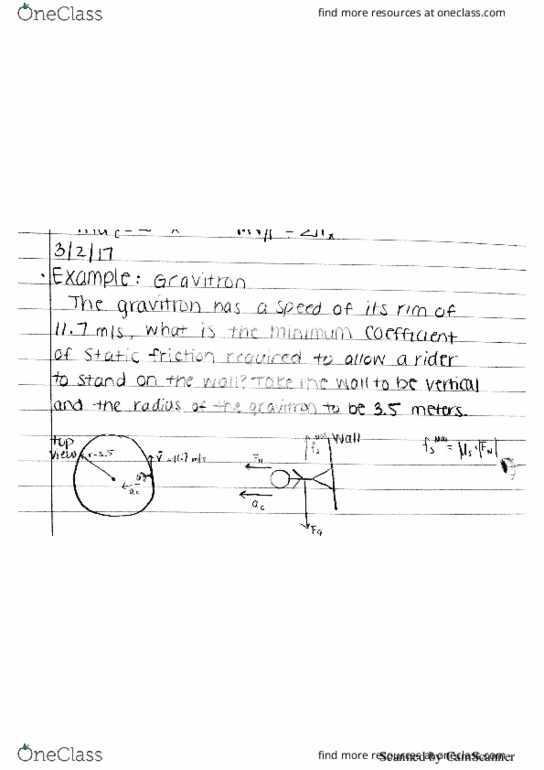 OneClass find more resources at oneclass.com
3/2/17
• Example: Gravitron
The gravitron has a speed of its rim of
11.7 m/s, what is the minimum coefficient
of static friction required to allow a rider
to stand on the wall? Take the wall to be vertical
and the radius of the gravitron to be 3.5 meters.
top view
r=3.5
v⃗ = 11.7 m/s
a_c
F_N
a_c
f_s^max
Wall
F_g
f_s^max = μ_s·|F_N|
OneClass find more resources at oneclass.com
Scanned by CamScanner